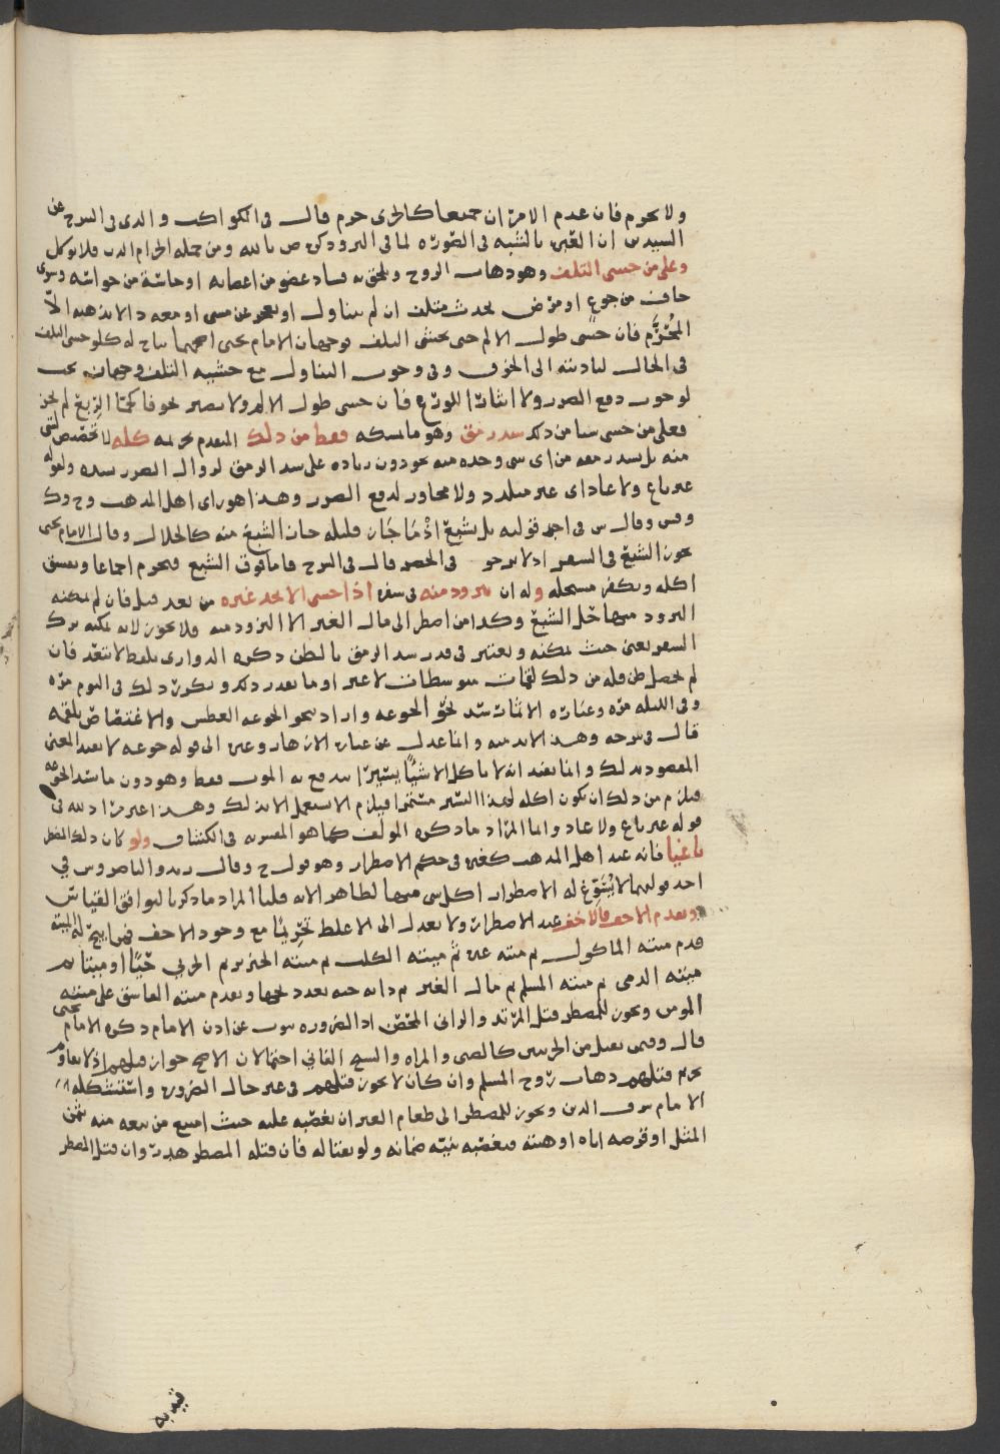 ولا يحرم فان عدم الامران جميعا كالجرى حرم قال فى الكواكب والذى فى الشرح عن
السيدين ان العبره بالشبه فى الصوره لما فى البر ودكره ص بالله ومن جمله الحرام الدب فلا يوكل
وعلى من خشى التلف وهو ذهاب الروح ويلحق به فساد عضو من اعضائه او حاسّة من حواسّه وسوى
خاف من جوع او مرض يحدث متلف ان لم يتناول او يعجز عن مشى او معه دالا يذهبه الا
المحرّم فان خشى طول الالم حتى يخشى التلف فوجهان الامام يحيى اصحهما يباح له كلو خشى التلف
فى الحال لتاديته الى الخوف وفى وجوب التناول مع خشية التلف وجهان يجب
لوجوب دفع الضرر ولا ايثارا للورع فان خشى طول الالم ولا يصير مخوفا كحمّا الربع لم يجز
فعلى من خشى شيا من ذلك سد رمق وهو ما يمسكه فقط من ذلك المتقدم تحريمه كله لا تخصيص لشى
منه بل يسد رمقه من اى شى وحده منه بحو دون زياده على سد الرمق لزوال الضرر بسده ولقوله
غير باغ ولا عاد اى غير متلذذ ولا مجاوز لدفع الضرر وهذا هو راى اهل المذهب وح وك
وش وقال ش فى احد قوليه بل يشبع اذ ما جاز قليله جاز الشبع منه كالحلال وقال الامام يحيى
يجوز الشبع فى السفر اذ لا يرجو فى الحضر قال فى الشرح فاما فوق الشبع فيحرم اجماعا ويفسق
اكله ويكفر مستحله وله ان يتزود منه فى سفر اذا خشى الا يجد غيره من بعد قيل فان لم يمكنه
التزود منها حل الشبع وكذا من اضطر الى مال الغير الا التزود منه فلا يجوز لانه يمكنه ترك
السفر يعنى حيث يمكنه ويعتبر فى قدر سد الرمق بالظن ذكره الدوارى بلفظ لا يتعد فان
لم يحصل ظن فله من ذلك لقمات متوسطات لا غير او ما يقدر ذلك ويكون ذلك فى اليوم مره
وفى الليله مره وعباره الاثمار سد نحو الجوعه واراد بنحو الجوعه العطس والاغتصاص بلقمه
قال فى شرحه وهذا لابد منه وانما عدل عن عباره الازهار وغيره الى قوله جوعه لا يفيد المعنى
المقصود بذلك وانما يفيد انه لا ياكل الا شيًا يسيرا يندفع به الموت فقط وهو دون ما يسد الجوعه
فيلزم من ذلك ان يكون اكله لهذا اليسير مستمرا فيلزم الا يستعمل الا بذلك وهذا غير مراد لله فى
قوله غير باغ ولا عاد وانما المراد ما ذكره المولف كما هو المفسر به فى الكشاف ولو كان ذلك المضطر
باغيا فانه عند اهل المذهب كغيره فى حكم الاضطرار وهو قول ح وقال زيد والناصر وش في
احد قوليهما لا يسوّغ له الاضطرار اكل شى منها لظاهر الايه قلنا المراد ما ذكرنا ليوافق القياس
ويقدم الاخف فالاخف عند الاضطرار ولا يعدل الى الاغلظ تحريمًا مع وجود الاخف فمن ابيح له الميته
قدم ميته الماكول ثم ميته غيره ثُمّ ميتة الكلب ثم ميته الخنزير ثم الحربي حيًا او ميتا ثم
ميته الذمى ثم ميته المسلم ثم مال الغير ثم دابه حيه بعد ذبحها ويقدم ميته الفاسق على ميته
المومن ويجوز للمضطر قتل المرتد والزانى المحصن اذ الضروره تنوب عن اذن الامام ذكره الامام يحيى
قال وفيمن يقتل من الحربيين كالصبى والمراه والشيخ الفانى احتمالان الاصح جواز قتلهم اذ لا يقاوم
تحريم قتلهم ذهاب روح المسلم وان كان لا يجوز قتلهم فى غير حال الضروره واستشكله
الامام شرف الدين ويجوز للمضطر الى طعام الغير ان يغصبه عليه حيث امتنع من بيعه منه بثمن
المثل او قرضه اياه او هبته فيغصبه بنيّة ضمانه ولو بقتاله فان قتله المضطر هدر وان قتل المضطر
قيد به